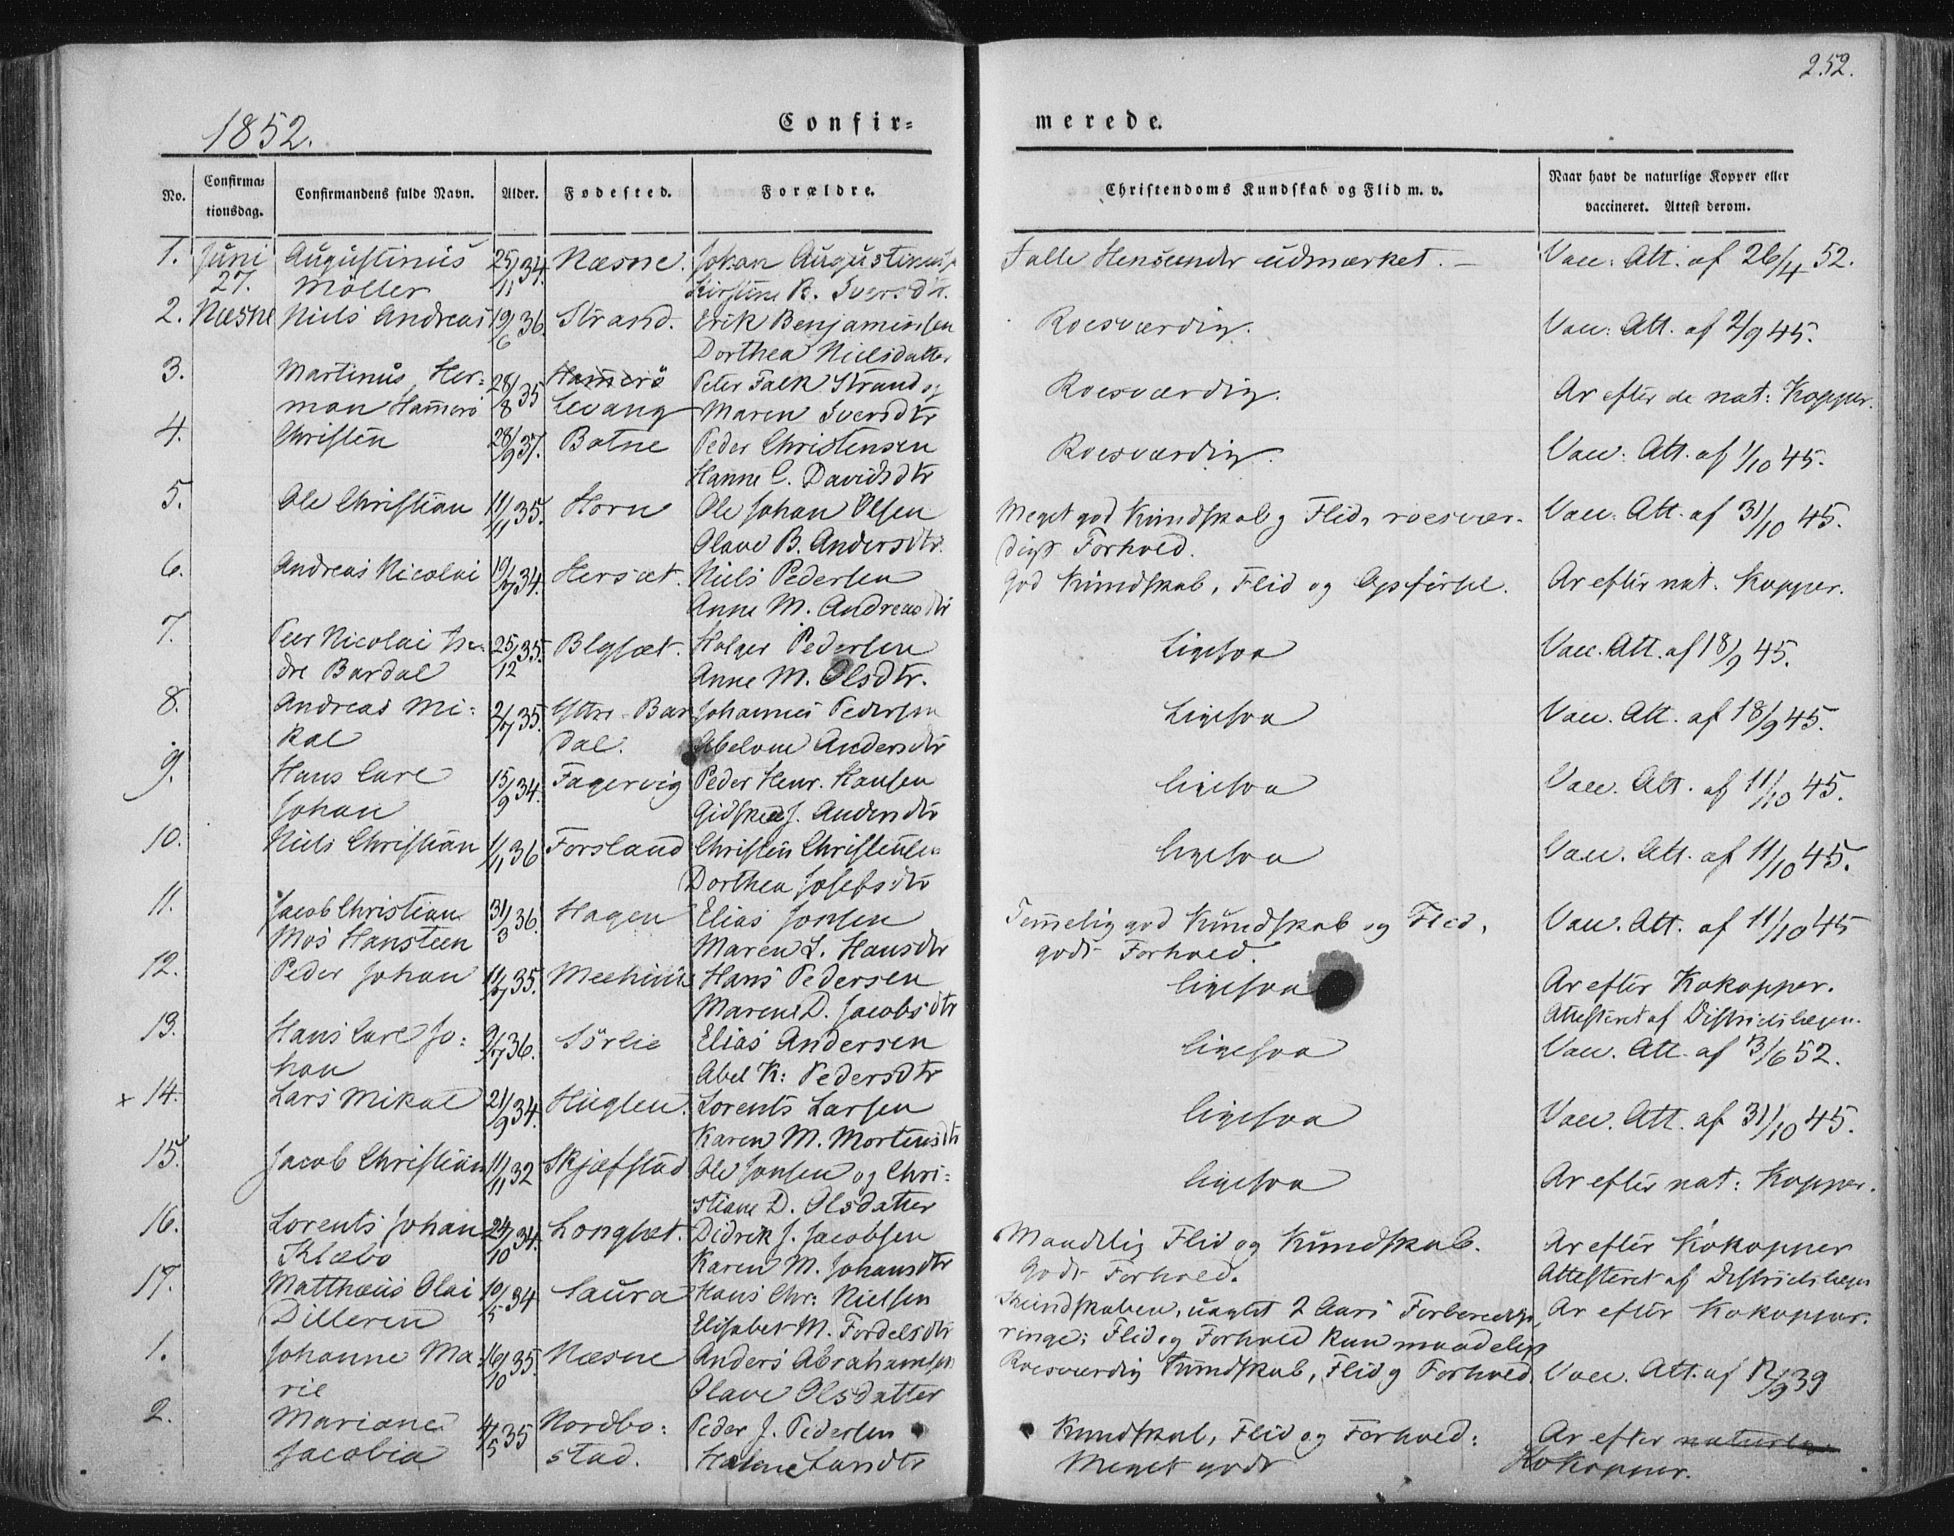 252.
1852.
Confir=
merede.
No.
Confirma=
tionsdag.
Confirmandens fulde Navn.
Alder.
Fødested.
Forældre.
Christendoms Kundskab og Flid m. v.
Naar havt de naturlige Kopper eller
vaccineret. Attest derom.
1. Juni Augustinus 25/11 34. Næsne. Johan Augustinus Falle Henseender udmærket. — Vacc. Att. af 26/4 52.
27. Möller Kirstine B. Iversdtr.
2. Næsne Niels Andreas 19/6 36. Strand. Erik Benjaminsen Roesværdig. Vacc. Att. af 2/9 45.
Dorthea Nielsdatter
3. Martinus Her= 28/8 35 Hamerö Peter Falk Strand og Roesværdig. Ar efter de nat: Kopper.
man Hamerö Levang Maren Iversdtr
4. Christen 28/9 37. Botne Peder Christensen Roesværdig. Vacc. Att. af 1/10 45.
Hanne C. Davidsdtr
5. Ole Christian 11/11 35. Horn Ole Johan Olsen Meget god Kundskab og Flid, roesvær- Vacc. Att. af 31/10 45.
Olave B. Andersdtr. digt Forhold.
6. Andreas Nicolai 19/7 34. Hersæt. Niels Pedersen God Kundskab, Flid og Opförsel. Ar efter nat. Kopper.
Anne M. Andreasdtr
7. Peer Nicolai In= 25/12 35. Blysæt. Holger Pedersen Ligesaa Vacc. Att. af 18/9 45.
dre Bardal Anne M. Olsdtr.
8. Andreas Mi= 2/7 35. Yttre-Bar Johannes Pedersen Ligesaa Vacc. Att. af 18/9 45.
kal dal. Abelone Andersdtr
9. Hans Carl 15/9 34. Fagervig Peder Henr. Hansen Ligesaa Vacc. Att. af 11/10 45.
Johan Gidsken J. Andersdtr
10. Niels Christian 1/1 36 Forsland Christen Christensen Ligesaa Vacc. Att. af 11/10 45.
Dorthea Josefsdtr
11. Jacob Christian 31/3 36. Hagen Elias Jonsen Temmelig god Kundskab og Flid, Vacc. Att. af 11/10 45
Mos Hansteen Maren L. Hansdtr godt Forhold.
12. Peder Johan 11/7 35. Hans Pedersen Ligesaa Ar efter Kokopper.
Maren D. Jacobsdtr Attesteret af Districtslægen.
13. Hans Carl Jo= 9/7 36. Sörlie Elias Andersen Ligesaa Vacc. Att. af 3/6 52.
han Abel K: Pedersdtr
x 14. Lars Mikal 21/9 34. Huglen. Lorents Larsen Ligesaa Vacc. Att. af 31/10 45.
Karen M. Mortensdtr
15. Jacob Christian 11/11 32 Skjæfstad Ole Jonsen og Chri= Ligesaa Ar efter nat: Kopper.
stiane D. Olsdatter
16. Lorents Johan 24/10 34. Longsæt. Didrik J. Jacobsen Maadelig Flid og Kundskab. Ar efter Kokopper
Klæbo Karen M. Johansdtr Godt Forhold. Attesteret af Districtslægen
17. Matthæus Olai 10/5 34 Saura Hans Chr: Nielsen Kundskaben, uagtet 2 Aars Forberedelse, Ar efter Kokopper.
Dilleren Elisabet M. Fordelsdtr ringe; Flid og Forhold kun maadelig
1. Johanne Ma= 16/10 35. Næsne Anders Abrahamsen Roesværdig Kundskab, Flid og Forhold. Vacc. Att. af 12/9 39
rie Olave Olsdatter
2. Mariane 4/5 35 Nordbo= Peder J. Pedersen Kundskab, Flid og Forhold: Ar efter naturlige
Jacobia stad. Meget godt Kokopper.